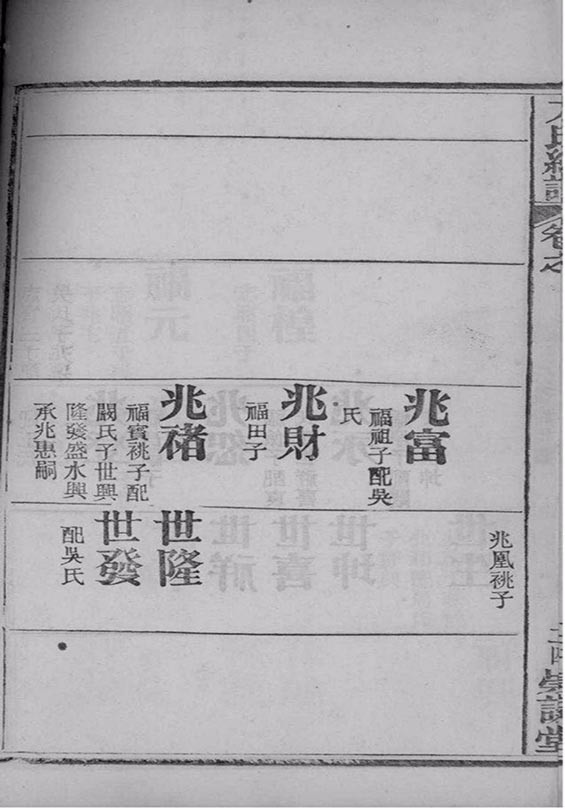 氏續譜
卷之
崇讓堂
兆富
福祖子配吳
氏
兆財
福田子
兆禇
福賓祧子配
闕氏子世興
隆發盛水興
承兆惠嗣
兆凰祧子
世隆
世發
配吳氏